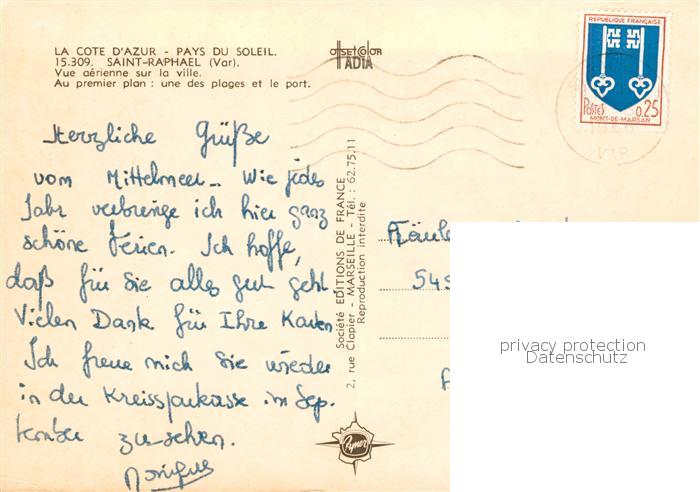 LA COTE D'AZUR - PAYS DU SOLEIL.
15.309. SAINT-RAPHAEL (Var).
Vue aérienne sur la ville.
Au premier plan : une des plages et le port.
OFFSET COLOR
ADIA
REPUBLIQUE FRANÇAISE
POSTES
0,25
MONT-DE-MARSAN
VAR
Herzliche Grüße
vom Mittelmeer. Wie jedes
Jahr verbringe ich hier ganz
schöne Ferien. Ich hoffe,
daß für Sie alles gut geht.
Vielen Dank für Ihre Karten
Ich freue mich Sie wieder
in der Kreissparkasse im Sep-
tember zu sehen.
Monique
Société EDITIONS DE FRANCE
2, rue Clapier - MARSEILLE - Tél. : 62.75.11
Reproduction interdite
Rymer
545
privacy protection
Datenschutz